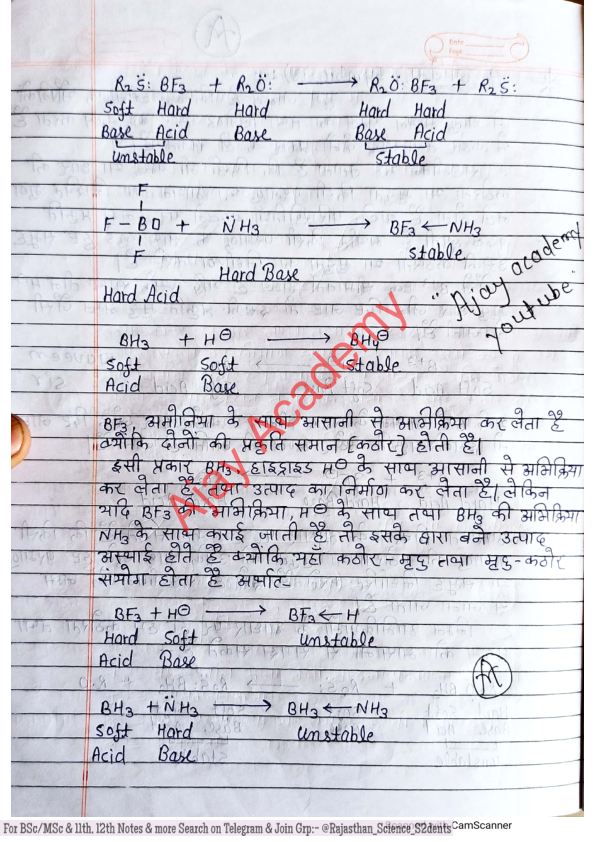 R₂S̈: BF₃ + R₂Ö: ⟶ R₂Ö: BF₃ + R₂S̈:
Soft Hard Hard Hard Hard
Base Acid Base Base Acid
unstable Stable
F
F – B▯ + N̈H₃ ⟶ BF₃ ← NH₃
F stable
Hard Base
Hard Acid
"Ajay academy
Youtube"
BH₃ + H⊖ ⟶ BH₄⊖
Soft Soft Stable
Acid Base
Ajay Academy
BF₃, अमोनिया के साथ आसानी से अभिक्रिया कर लेता है
क्योंकि दोनों की प्रकृति समान [कठोर] होती है।
इसी प्रकार BH₃, हाइड्राइड H⊖ के साथ आसानी से अभिक्रिया
कर लेता है तथा उत्पाद का निर्माण कर लेता है। लेकिन
यदि BF₃ की अभिक्रिया, H⊖ के साथ तथा BH₃ की अभिक्रिया
NH₃ के साथ कराई जाती है तो इसके द्वारा बने उत्पाद
अस्थाई होते है क्योंकि यहाँ कठोर - मृदु तथा मृदु - कठोर
संयोग होता है अर्थात-
BF₃ + H⊖ ⟶ BF₃ ← H
Hard Soft unstable
Acid Base
BH₃ + N̈H₃ ⟶ BH₃ ← NH₃
Soft Hard Unstable
Acid Base
For BSc/MSc & 11th, 12th Notes & more Search on Telegram & Join Grp:- @Rajasthan_Science_S2dents
CamScanner